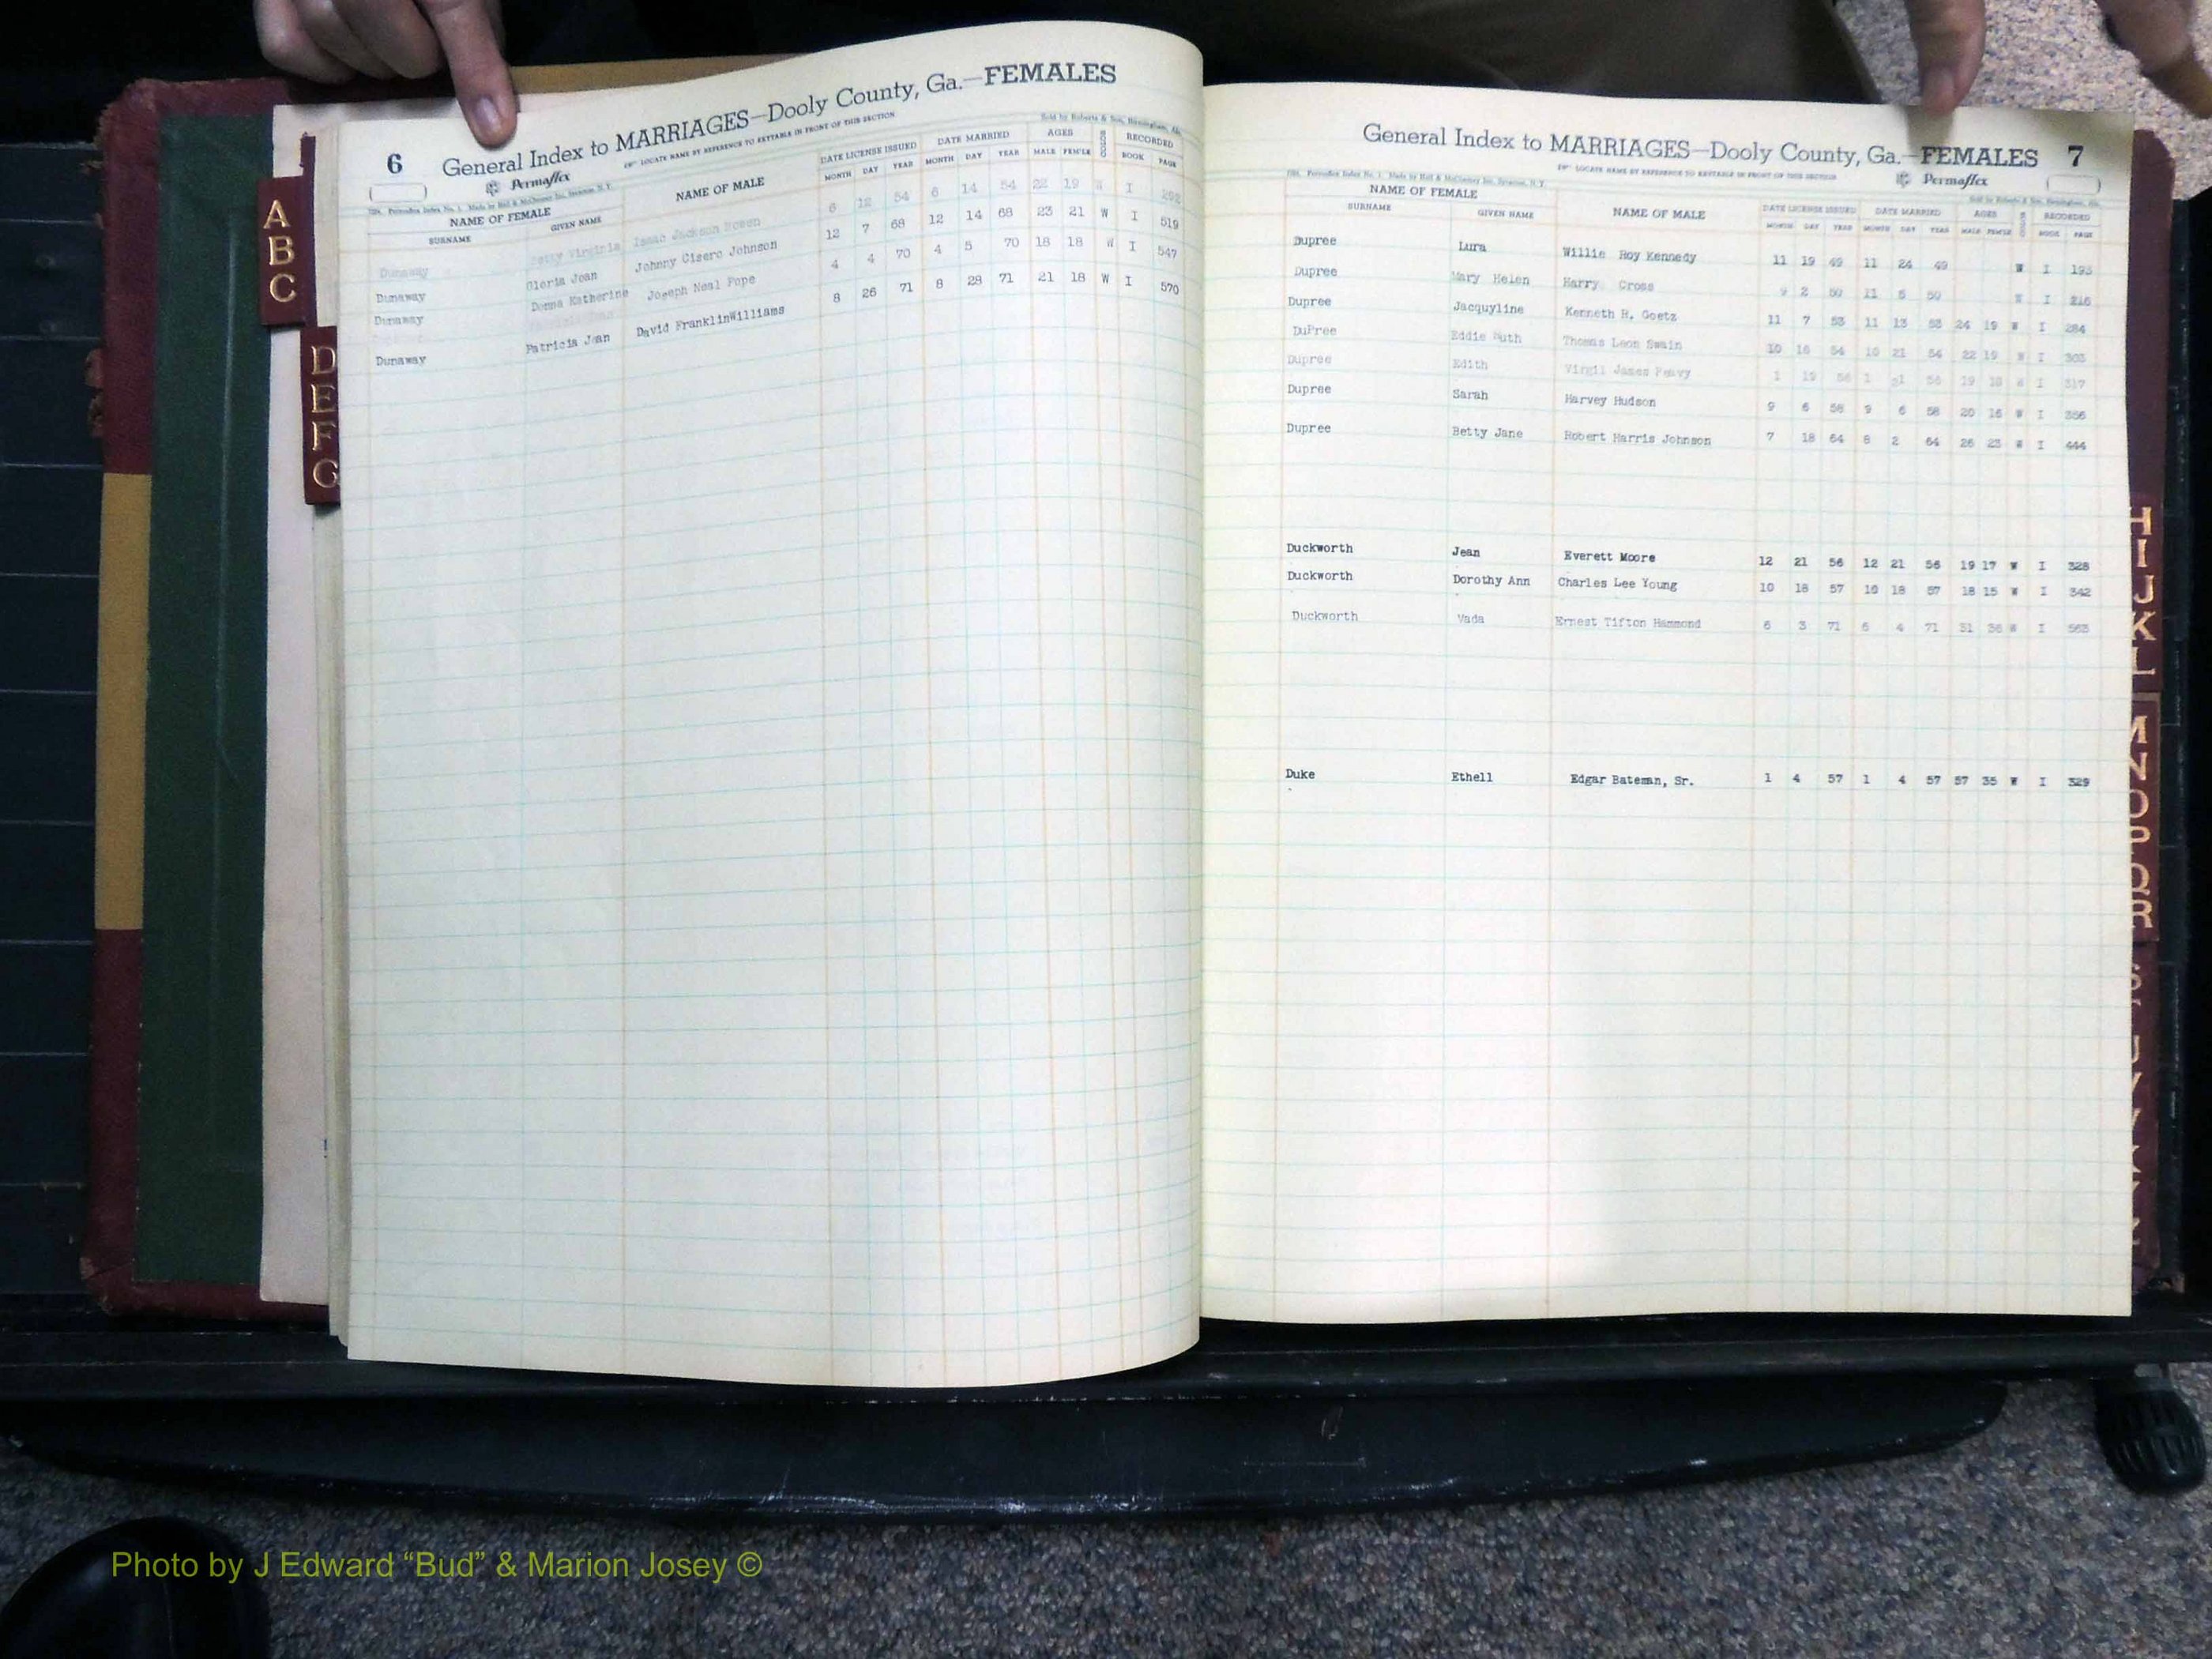 6 General Index to MARRIAGES—Dooly County, Ga.—FEMALES
LOCATE NAME BY REFERENCE TO KEYTABLE IN FRONT OF THIS SECTION
Permaflex
Sold by Roberts & Son, Birmingham, Ala.
NAME OF FEMALE NAME OF MALE DATE LICENSE ISSUED DATE MARRIED AGES COLOR RECORDED
SURNAME GIVEN NAME MONTH DAY YEAR MONTH DAY YEAR MALE FEM'LE BOOK PAGE
Dunaway Betty Virginia Isaac Jackson Bowen 6 12 54 6 14 54 22 19 W I 292
Dunaway Gloria Jean Johnny Cisero Johnson 12 7 68 12 14 68 23 21 W I 519
Dunaway Donna Katherine Joseph Neal Pope 4 4 70 4 5 70 18 18 W I 547
Dunaway Patricia Jean David FranklinWilliams 8 26 71 8 28 71 21 18 W I 570
General Index to MARRIAGES—Dooly County, Ga.—FEMALES 7
LOCATE NAME BY REFERENCE TO KEYTABLE IN FRONT OF THIS SECTION
Permaflex
Sold by Roberts & Son, Birmingham, Ala.
NAME OF FEMALE NAME OF MALE DATE LICENSE ISSUED DATE MARRIED AGES COLOR RECORDED
SURNAME GIVEN NAME MONTH DAY YEAR MONTH DAY YEAR MALE FEM'LE BOOK PAGE
Dupree Lura Willie Roy Kennedy 11 19 49 11 24 49 W I 193
Dupree Mary Helen Harry Cross 9 2 50 11 5 50 W I 216
Dupree Jacquyline Kenneth R. Goetz 11 7 53 11 13 53 24 19 W I 284
DuPree Eddie Ruth Thomas Leon Swain 10 16 54 10 21 54 22 19 W I 303
Dupree Edith Virgil James Peavy 1 19 56 1 21 56 19 18 W I 317
Dupree Sarah Harvey Hudson 9 6 58 9 6 58 20 16 W I 356
Dupree Betty Jane Robert Harris Johnson 7 18 64 8 2 64 26 23 W I 444
Duckworth Jean Everett Moore 12 21 56 12 21 56 19 17 W I 328
Duckworth Dorothy Ann Charles Lee Young 10 18 57 10 18 57 18 15 W I 342
Duckworth Vada Ernest Tifton Hammond 6 3 71 6 4 71 51 36 W I 563
Duke Ethell Edgar Bateman, Sr. 1 4 57 1 4 57 57 35 W I 329
A
B
C
D
E
F
G
H
I
J
K
L
M
N
O
P
Q
R
S
T
U
V
Photo by J Edward “Bud” & Marion Josey ©